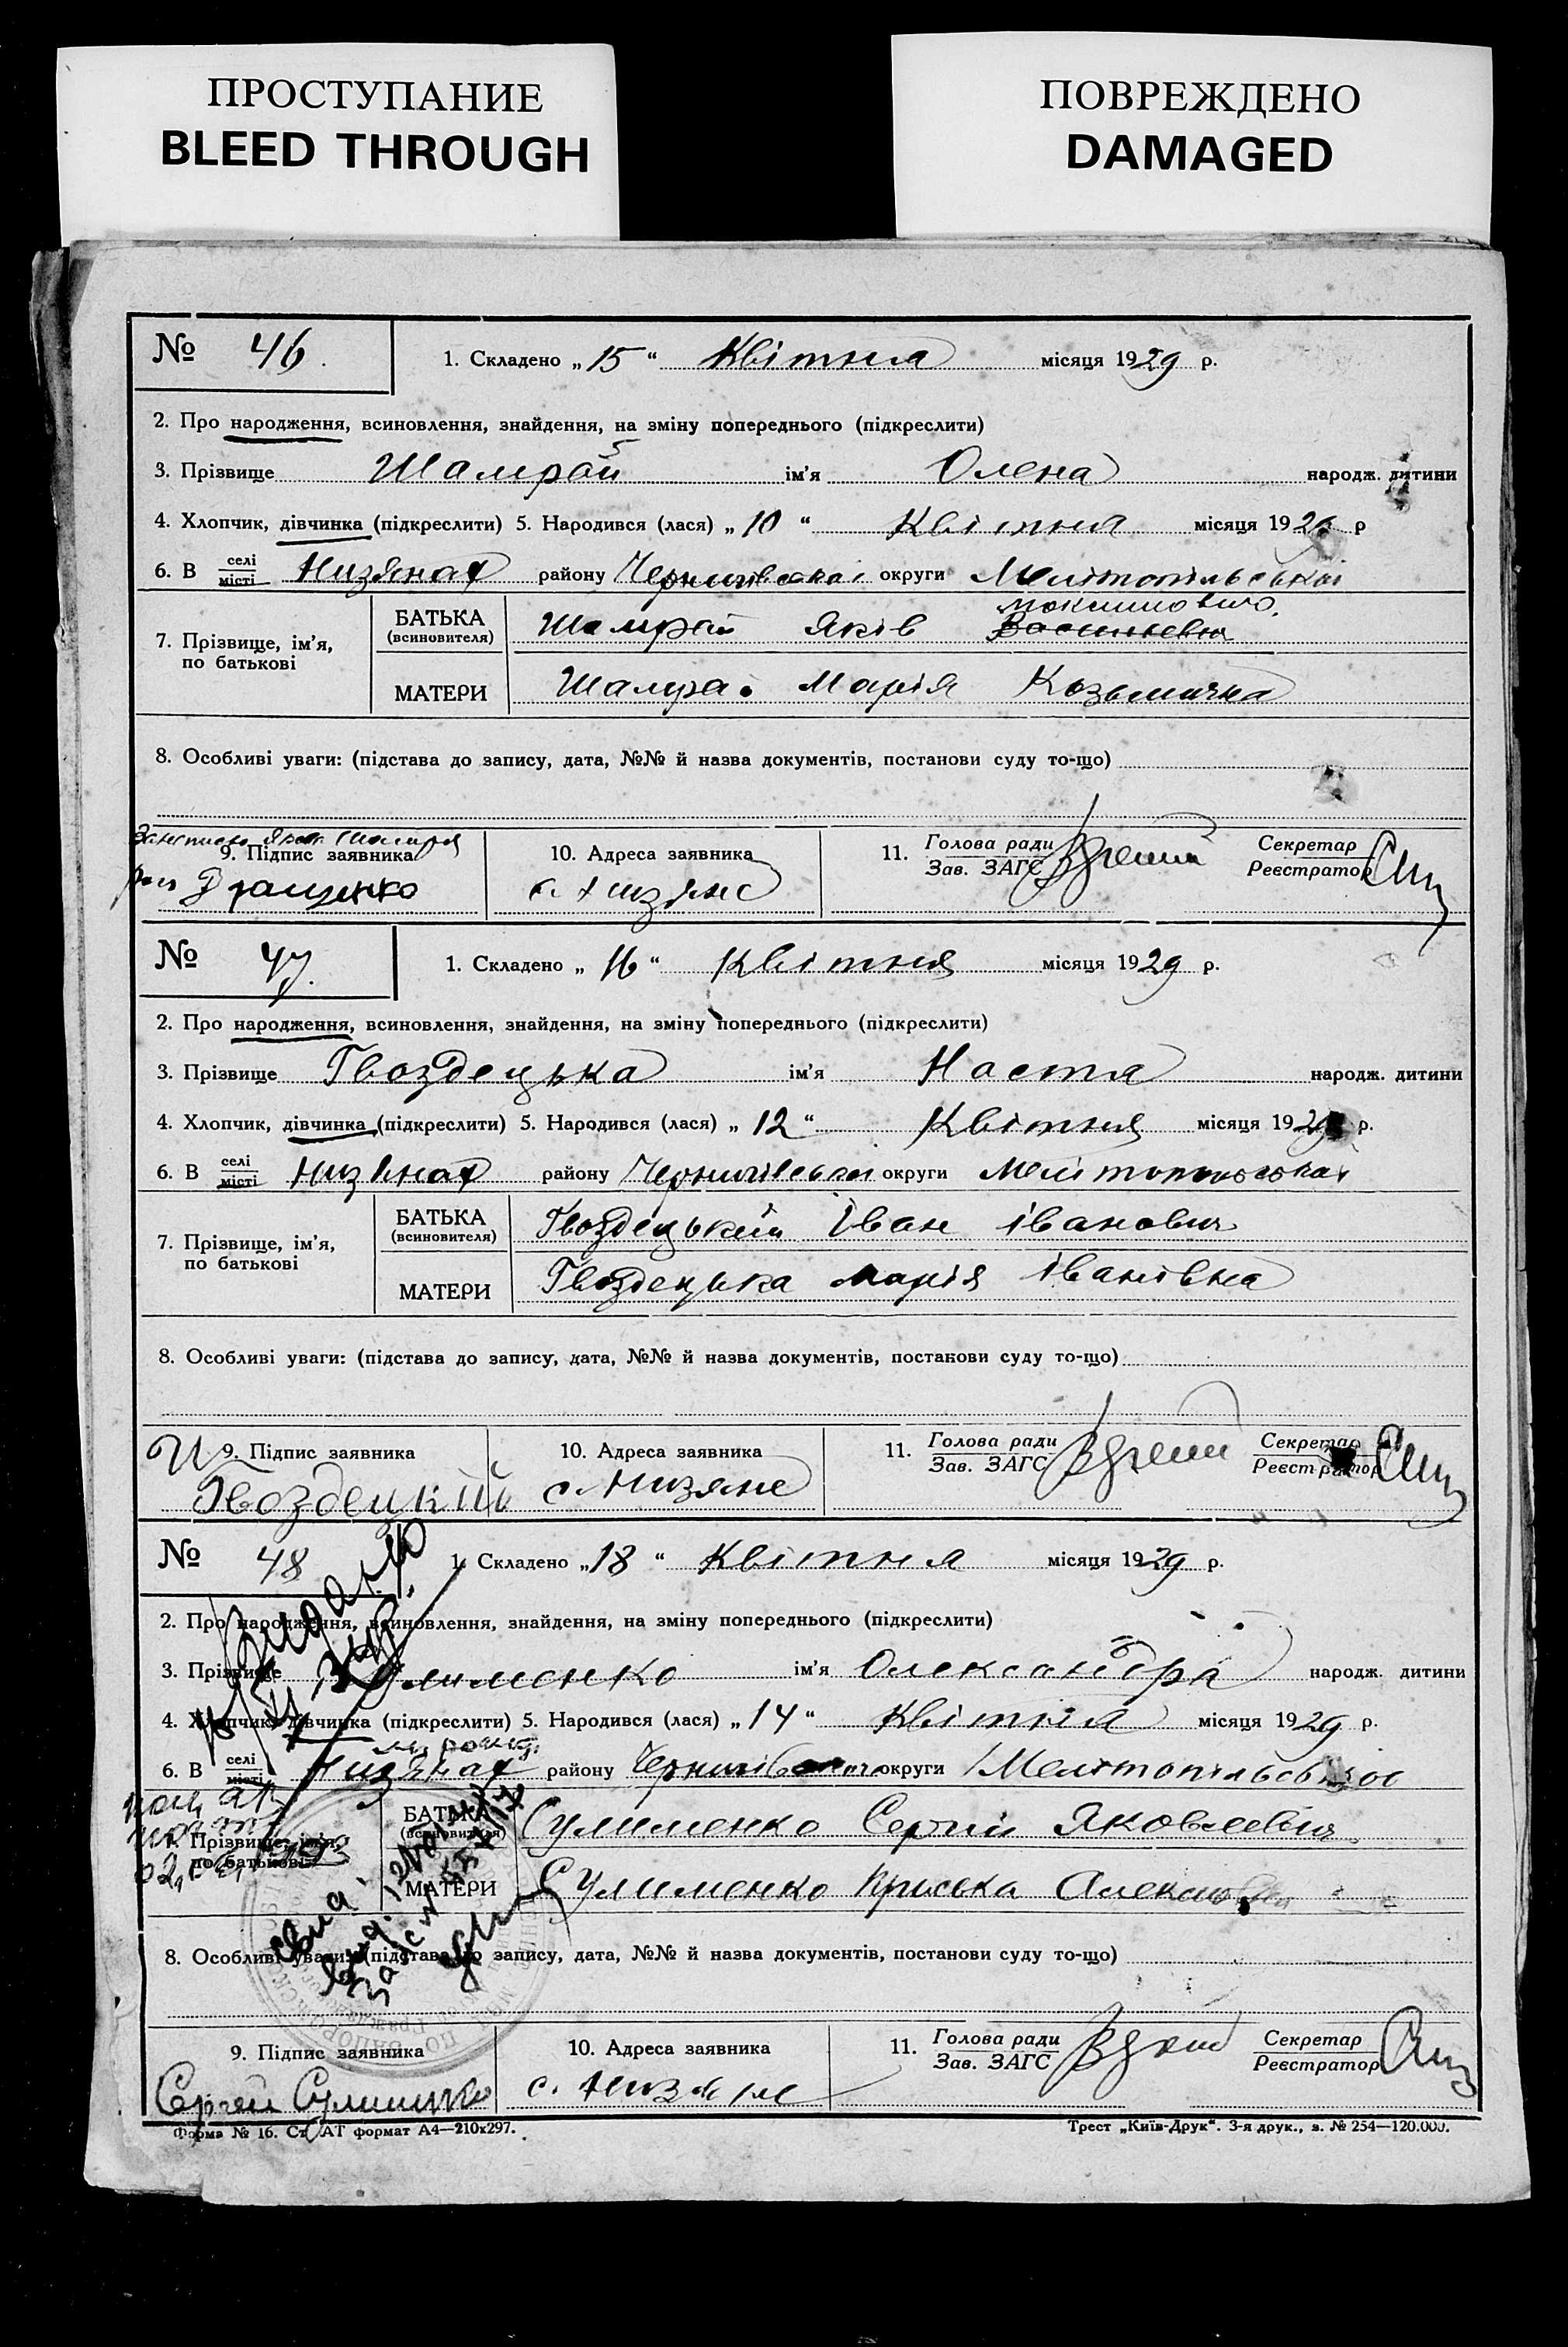 ПРОСТУПАНИЕ
BLEED THROUGH
ПОВРЕЖДЕНО
DAMAGED
№ 46. 1. Складено „15“ Квітня місяця 1929 р.
2. Про народження, всиновлення, знайдення, на зміну попереднього (підкреслити)
3. Прізвище Шамрай ім'я Олена народж. дитини
4. Хлопчик, дівчинка (підкреслити) 5. Народився (лася) „10“ Квітня місяця 1929 р
6. В селі місті Низянах району Чернигівської округи Мелітопільської
Максимович
7. Прізвище, ім'я, по батькові БАТЬКА (всиновителя) Шамрай Яків Васильевич
МАТЕРИ Шамра. Марія Козьминна
8. Особливі уваги: (підстава до запису, дата, №№ й назва документів, постанови суду то-що)
9. Підпис заявника 10. Адреса заявника 11. Голова ради Зав. ЗАГС Секретар Реєстратор
с. Низяне
№ 47. 1. Складено „16“ Квітня місяця 1929 р.
2. Про народження, всиновлення, знайдення, на зміну попереднього (підкреслити)
3. Прізвище Гвоздецька ім'я Настя народж. дитини
4. Хлопчик, дівчинка (підкреслити) 5. Народився (лася) „12“ Квітня місяця 1929 р.
6. В селі місті Низянах району Чернигівської округи Мелітопольської
7. Прізвище, ім'я, по батькові БАТЬКА (всиновителя) Гвоздецький Іван Іванович
МАТЕРИ Гвоздецька Марія Іванівна
8. Особливі уваги: (підстава до запису, дата, №№ й назва документів, постанови суду то-що)
9. Підпис заявника 10. Адреса заявника 11. Голова ради Зав. ЗАГС Секретар Реєстратор
Гвоздецкий с. Низяне
№ 48 1. Складено „18“ Квітня місяця 1929 р.
2. Про народження, всиновлення, знайдення, на зміну попереднього (підкреслити)
3. Прізвище Сулименко ім'я Олександра народж. дитини
4. Хлопчик, дівчинка (підкреслити) 5. Народився (лася) „14“ Квітня місяця 1929 р.
6. В селі місті Низянах району Чернигівської округи Мелітопільської
7. Прізвище, ім'я, по батькові БАТЬКА (всиновителя) Сулименко Сергій Яковлевич
МАТЕРИ Сулименко Приська
8. Особливі уваги: (підстава до запису, дата, №№ й назва документів, постанови суду то-що)
9. Підпис заявника 10. Адреса заявника 11. Голова ради Зав. ЗАГС Секретар Реєстратор
Сергей Сулименко с. Низяне
Форма № 16. СтАТ формат А4—210x297. Трест „Київ-Друк“. 3-я друк., з. № 254—120.000.